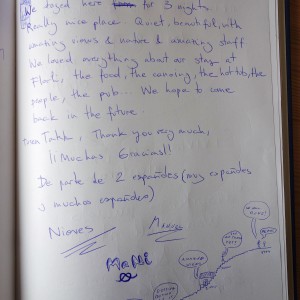 We stayed here for 3 nights
Really nice place. Quiet, beautiful, with
amazing views & nature & amazing staff
We loved everything about our stay at
the food, the canoeing, the hot tub, the
people, the pub... We hope to come
back in the future.
Takk, Thank you very much,
¡¡Muchas Gracias!!
De parte de 2 españoles (muy españoles
y muchos españoles)
Nieves